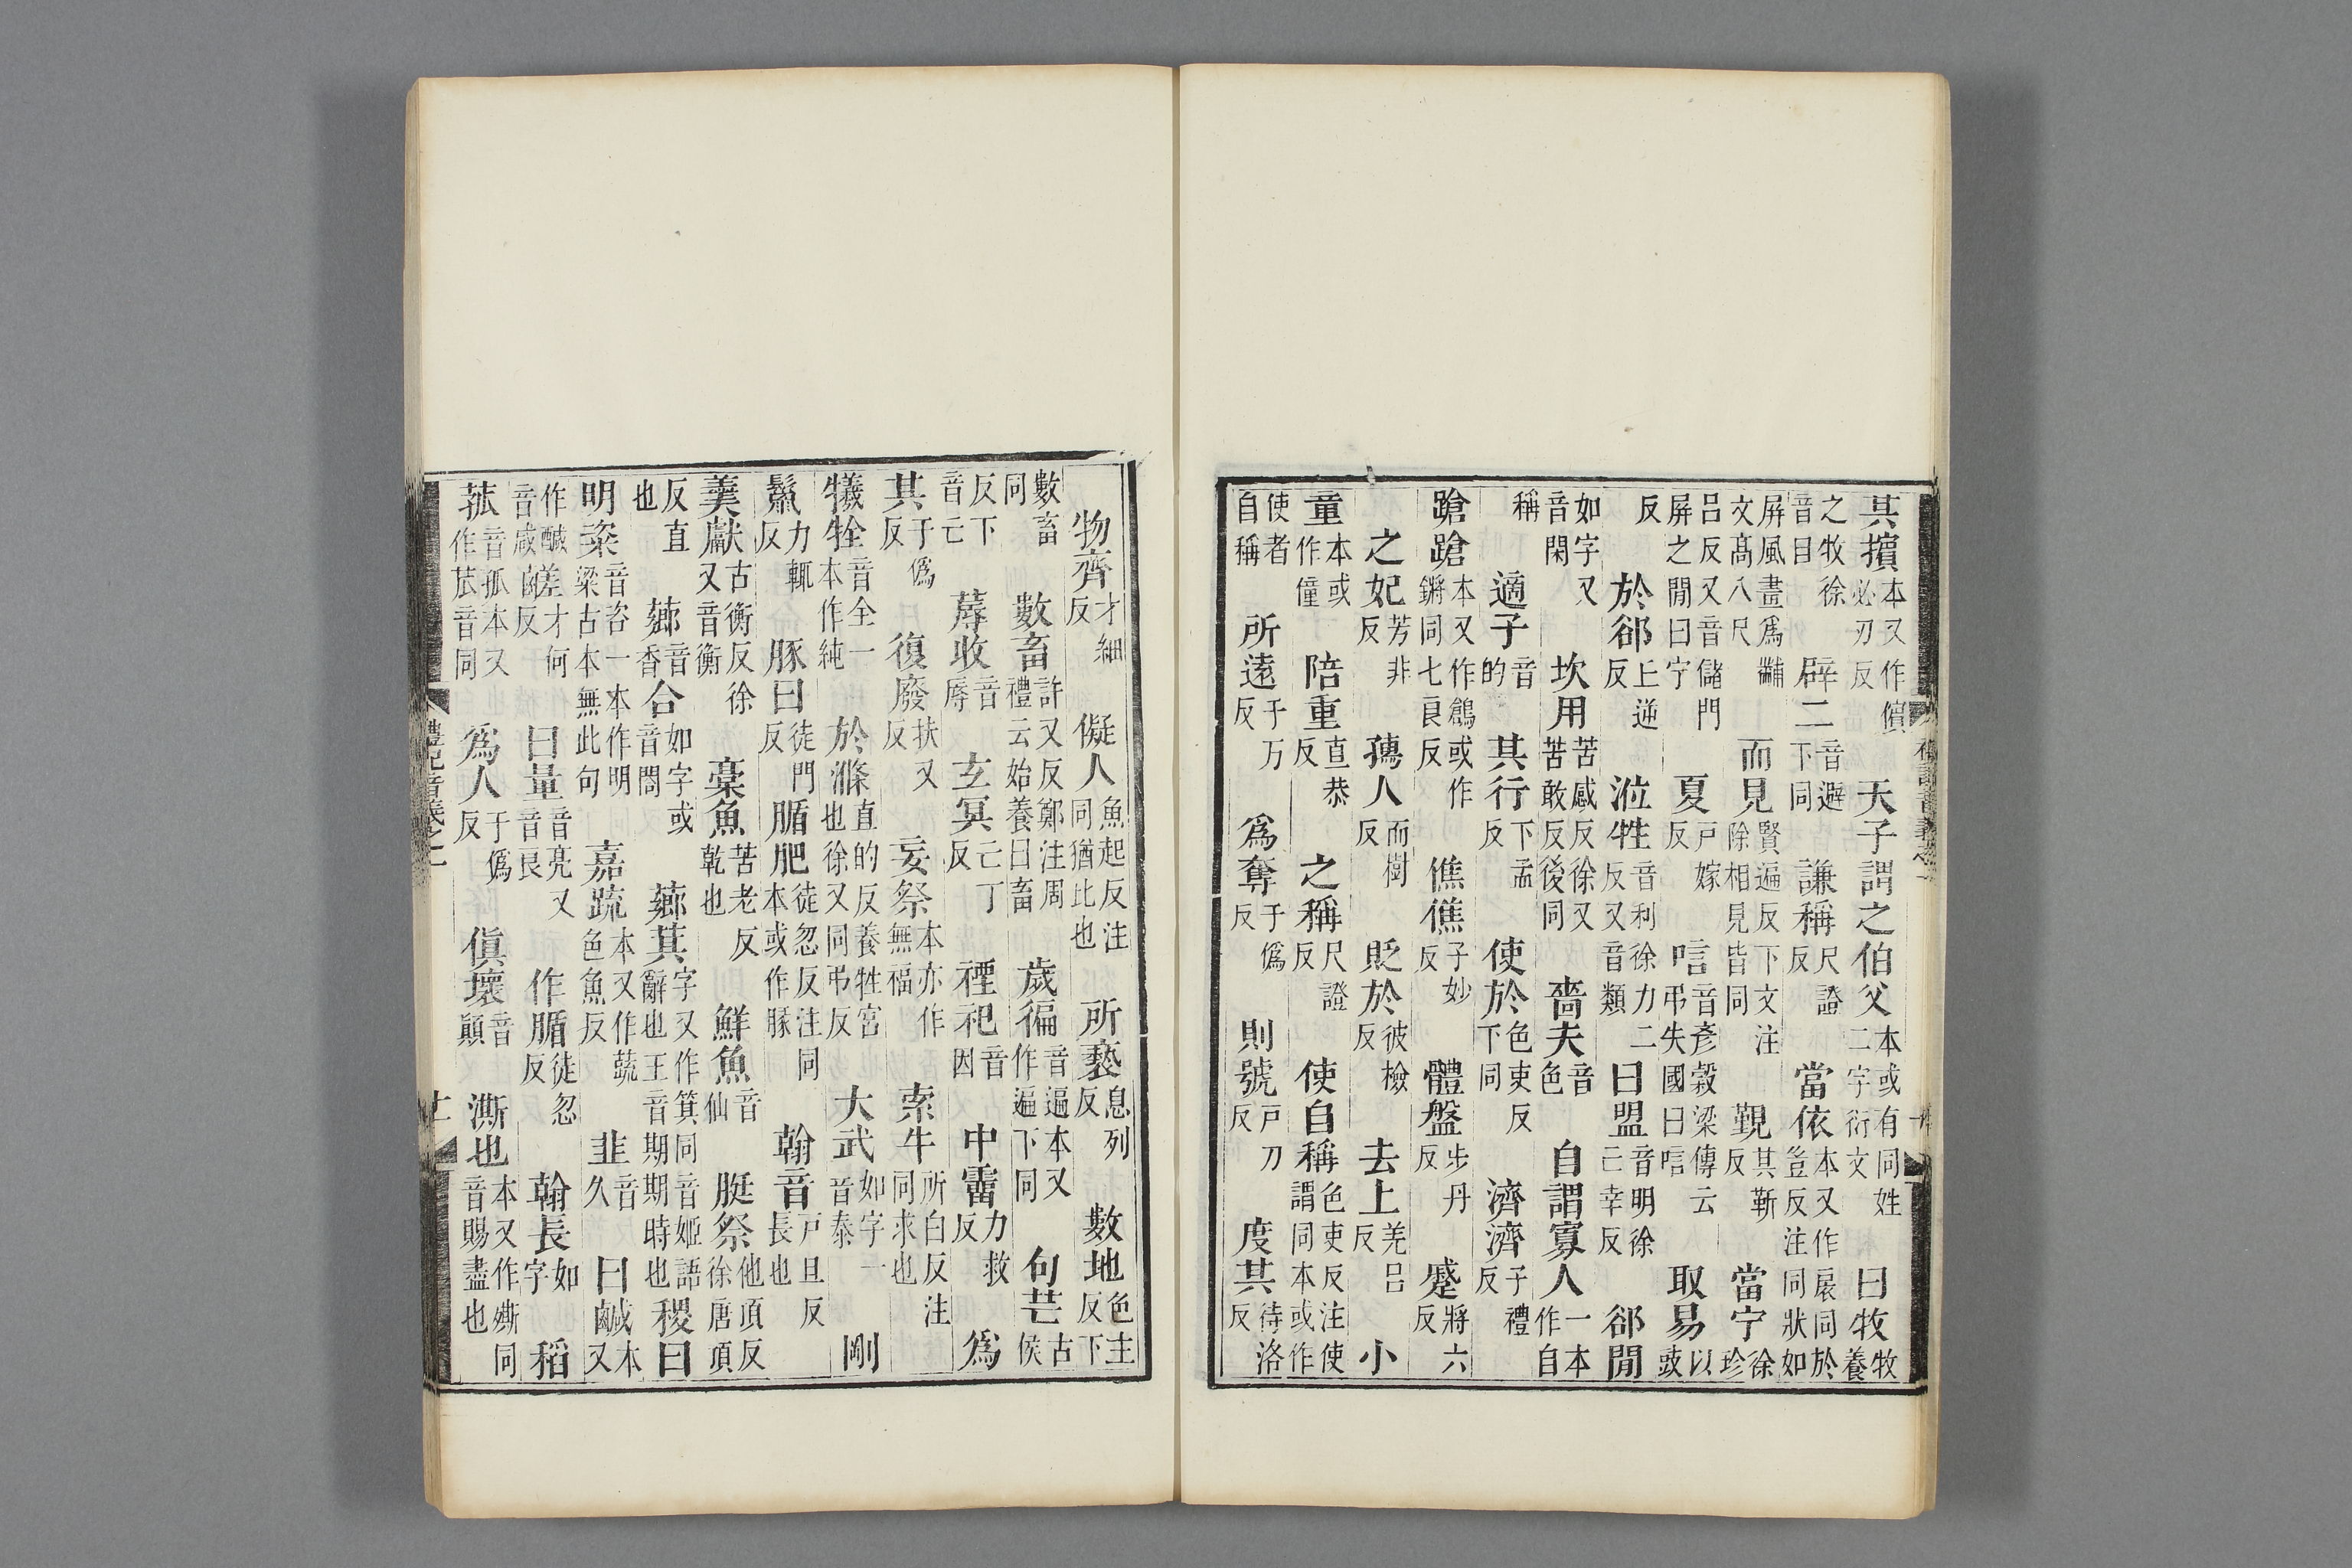 其擯本又作儐必刃反天子謂之伯父本或有同姓二字衍文曰牧牧養
之牧徐音目辟二音避下同謙稱尺證反當依本又作扆同於豈反注同狀如
屏風畫爲黼文高八尺而見賢遍反下文注除相見皆同覲其靳反當宁徐珍
呂反又音儲門屏之閒曰宁夏戸嫁反唁音彥榖梁傳云弔失國曰唁取易以豉
反於郤上逆反涖牲音利徐力二反又音類曰盟音明徐亡幸反郤閒
如字又音閑坎用苦感反徐又苦敢反後同嗇夫音色自謂寡人一本作自
稱適子音的其行下孟反使於色吏反下同濟濟子禮反
蹌蹌本又作鶬或作鏘同七良反僬僬子妙反體盤步丹反蹙將六反
之妃芳非反孺人而樹反貶於彼檢反去上羌呂反小
童本或作僮陪重直恭反之稱尺證反使自稱色吏反注使謂同本或作
使者自稱所遠于万反爲奪于僞反則號戸刀反度其待洛反
物齊才細反儗人魚起反注同猶比也所褻息列反數地色主反下
數畜同數畜許又反鄭注周禮云始養曰畜歲徧音遍本又作遍下同句芒古侯
反下音亡蓐收音辱玄冥亡丁反禋祀音因中霤力救反爲
其于僞反復廢扶又反妄祭本亦作無福索牛所白反注同求也
犧牷音全一本作純於滌直的反養牲宮也徐又同弔反大武如字一音泰剛
鬣力輒反豚曰徒門反腯肥徒忽反注同本或作豚翰音戸旦反長也
羹獻古衡反徐又音衡槀魚苦老反乾也鮮魚音仙脡祭他頂反徐唐項
反直也薌音香合如字或音閤薌萁字又作箕同音姬語辭也王音期期時也稷曰
明粢音咨一本作明粱古本無此句嘉蔬本又作蔬色魚反韭音久曰鹹本又
作醎音咸鹺才何反曰量音亮又音良作腯徒忽反翰長如字稻
菰音孤本又作苽音同爲人于僞反傎壞音顛澌也本又作嘶同音賜盡也
禮記音義之一